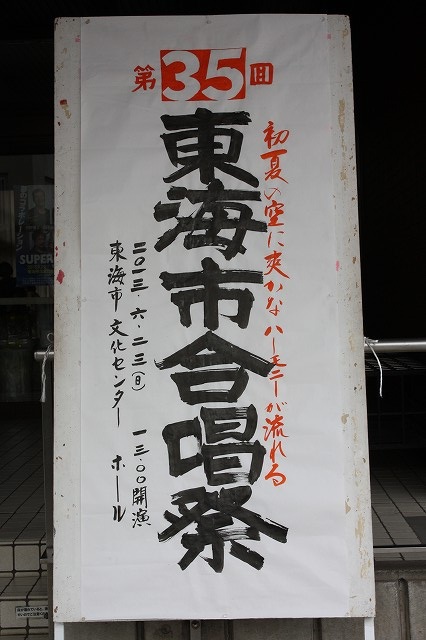 第35回
初夏の空に爽かなハーモニーが流れる
東海市合唱祭
二〇一三.六.二三(日) 一三.〇〇開演
東海市文化センター ホール
SUPER